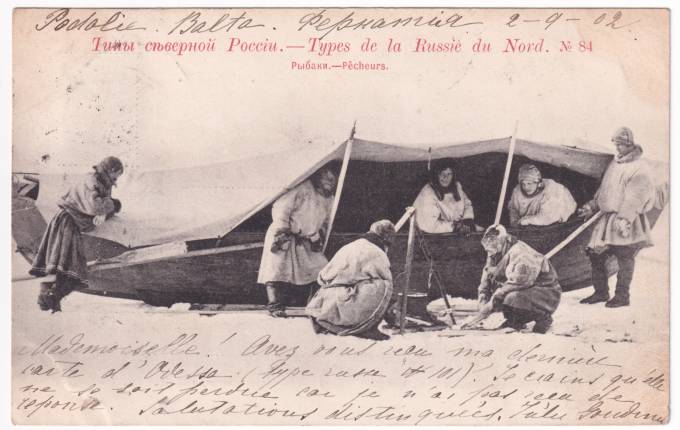 Podolie. Balta. Ферматия 2-9-02.
Типы сѣверной Россіи.—Types de la Russie du Nord. № 84
Рыбаки.—Pêcheurs.
Mademoiselle! Avez vous reçu ma dernière
carte d'Odessa (type russe № 101). Je crains qu'elle
ne se soit perdue car je n'ai pas reçu de
réponse. Salutations distinguées.